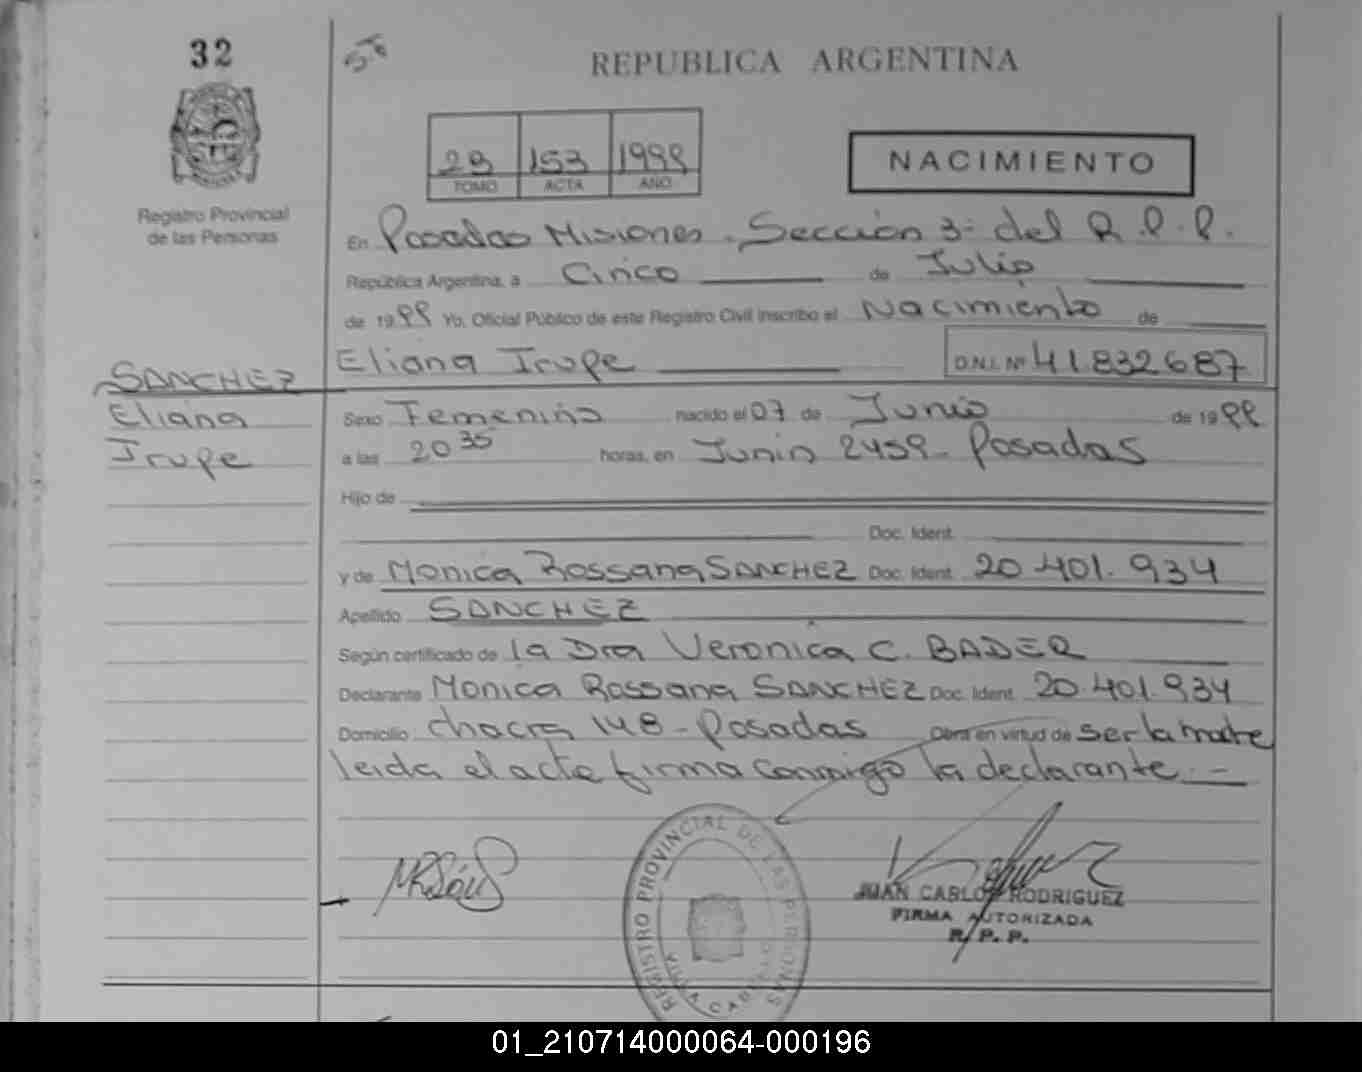 32
REPUBLICA ARGENTINA
29 153 1999
TOMO ACTA AÑO
NACIMIENTO
Registro Provincial
de las Personas
En Posadas Misiones. Sección 3ª del R.P.P.
República Argentina, a Cinco de Julio
de 1999 Yo, Oficial Público de este Registro Civil inscribo el Nacimiento de
Eliana Irupe D.N.I. Nº 41.832.687
SANCHEZ
Eliana
Irupe
Sexo Femenino nacido el 07 de Junio de 1999
a las 20 35 horas, en Junin 2459 - Posadas
Hijo de
Doc. Ident.
y de Monica Rossana SANCHEZ Doc. Ident. 20.401.934
Apellido SANCHEZ
Según certificado de la Dra Veronica C. BADER
Declarante Monica Rossana SANCHEZ Doc. Ident. 20.401.934
Domicilio chacra 148 - Posadas Obra en virtud de ser la madre
leida el acta firma conmigo la declarante. -
REGISTRO PROVINCIAL DE LAS PERSONAS
JUAN CARLOS RODRIGUEZ
FIRMA AUTORIZADA
R. P. P.
01_210714000064-000196